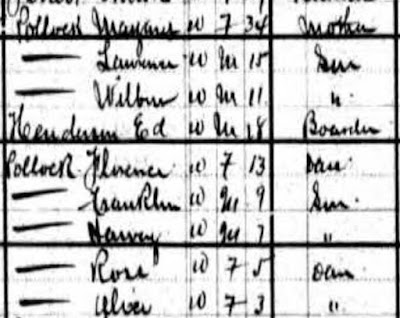 Pollock Margaret W F 34 Mother
— Lawrence W M 15 Son
— Wilbur W M 11 "
Henderson Ed W M 18 Boarder
Pollock Florence W F 13 Dau
— Franklin W M 9 Son
— Harvey W M 7 "
— Rosa W F 5 Dau
— Oliver W F 3 "